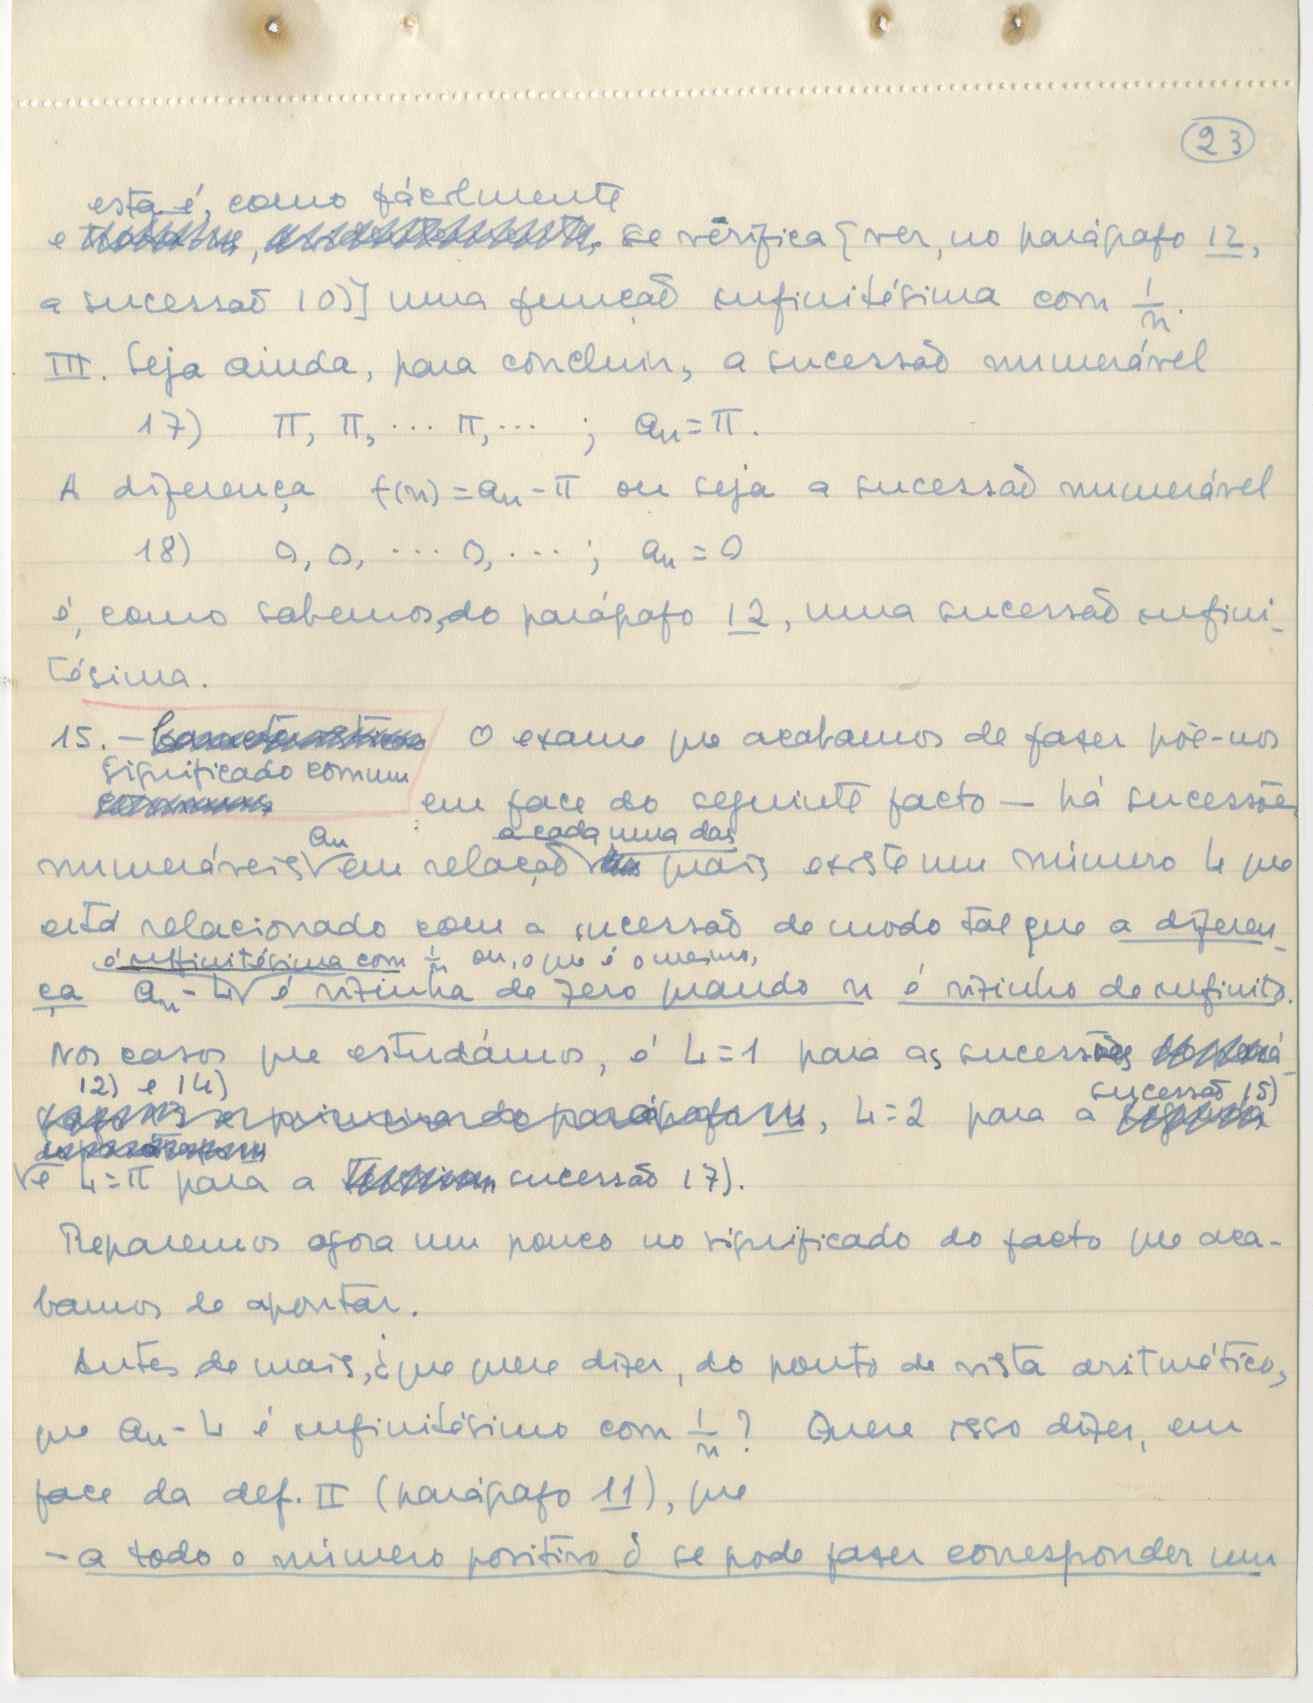 23
esta é, como fácilmente
e se verifica [ver, no parágrafo 12,
a sucessão 10)] uma função infinitésima com 1/n.
III. Seja ainda, para concluir, a sucessão numerável
17) π, π, ... π, ... ; an = π.
A diferença f(n) = an - π ou seja a sucessão numerável
18) 0, 0, ... 0, ... ; an = 0
é, como sabemos, do parágrafo 12, uma sucessão infini-
tésima.
15. – O exame que acabamos de fazer põe-nos
significado comum
em face do seguinte facto — há sucessões
an a cada uma das
numeráveis em relação quais existe um número L que
está relacionado com a sucessão de modo tal que a diferen-
é infinitésima com 1/n ou, o que é o mesmo,
ça an - L é vizinha de zero quando n é vizinho de infinito.
Nos casos que estudámos, é L=1 para as sucessões
12) e 14) sucessão 15)
, L=2 para a
e L=π para a sucessão 17).
Reparemos agora um pouco no significado do facto que aca-
bamos de apontar.
Antes de mais, ¿que quere dizer, do ponto de vista aritmético,
que an - L é infinitésimo com 1/n? Quere isso dizer, em
face da def. II (parágrafo 11), que
- a todo o número positivo δ se pode fazer corresponder um